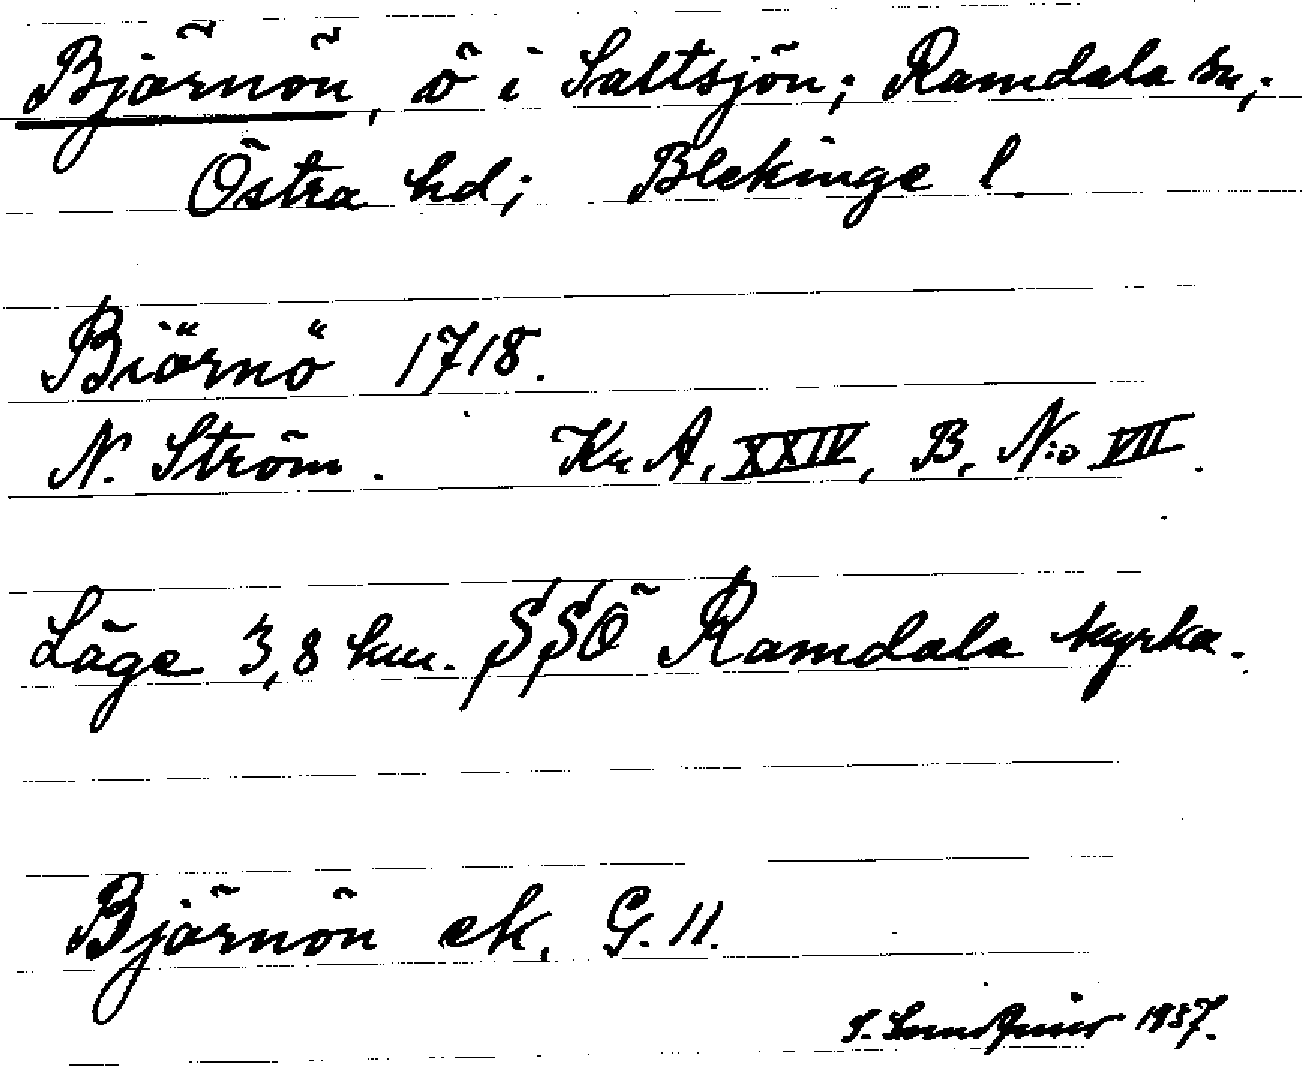 Björnön, ö i Saltsjön; Ramdala sn;
Östra hd; Blekinge l.
Biörnö 1718.
N. Ström. Kr A, XXIV, B, N:o VII.
Läge 3,8 km. SSÖ Ramdala kyrka.
Björnön ek. G. 11.
1937.